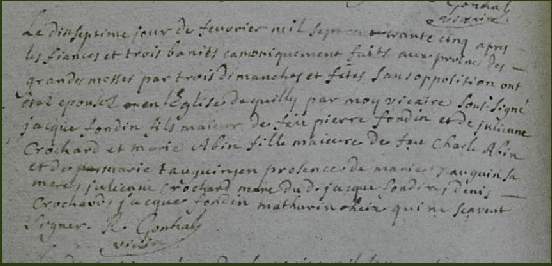 Le disseptime jour de feverier mil sept cent trante cinq apres
les fiances et trois banits canoniquement faits aux prones des
grandes messes par trois dimanches et fêtes sans oppolition ont
été epousez en l'Eglise de quilly par moy vicaire sous signé
jacque fondin fils maieur de feu pierre fondin et de julienne
Crochard et marie Abin fille maieure de feu Charle Abin
et de marie tauguin en presence de marie Tauguin sa
mere, julienne Crochard mere du d. jacque fondin, denis
Crochard, jacque fondin mathurin qui ne scavent
signer
vicaire